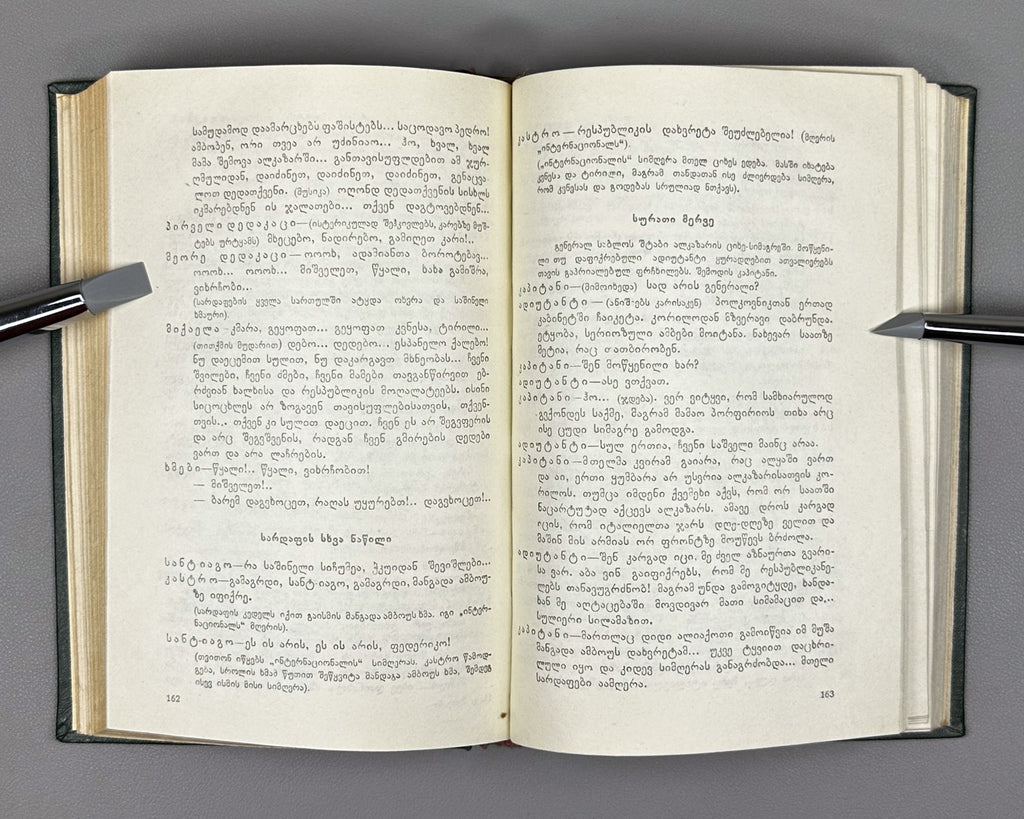 სამუდამოდ დაამარცხებს ფაშისტებს... საცოდავო პედრო!
ამბობენ, ორი თვეა არ უძინიაო... ჰო, ხვალ, ხვალ
მამა შემოვა ალკაზარში... განთავისუფლდებით ამ ჯურ-
ღმულიდან, დაიძინეთ, დაიძინეთ, დაიძინეთ, გენაცვა-
ლოთ დედათქვენი. (მუსიკა) ოღონდ დედათქვენის სისხლს
იკმარებდნენ ის ჯალათები... თქვენ დაგტოვებდნენ...
პირველი დედაკაცი—(ისტერიკულად შეჰკივლებს, კარებზე მუშ-
ტებს ურტყამს) მხეცებო, ნადირებო, გამიღეთ კარი!..
მეორე დედაკაცი—ოოოხ, ადამიანთა ბოროტებავ...
ოოოხ... ოოოხ... მიშველეთ, წყალი, ხახა გამიშრა,
ვიხრჩობი...
(სარდაფების ყველა სართულში ატყდა ოხვრა და საშინელი
ხმაური).
მიქაელა—კმარა, გეყოფათ... გეყოფათ კვნესა, ტირილი...
(თითქმის მუდარით) დებო... დედებო... ესპანელო ქალებო!
ნუ დაეცემით სულით, ნუ დაკარგავთ მხნეობას... ჩვენი
შვილები, ჩვენი ძმები, ჩვენი მამები თავგანწირვით ებ-
რძვიან ხალხისა და რესპუბლიკის მოღალატეებს. ისინი
სიცოცხლეს არ ზოგავენ თავისუფლებისათვის, თქვენ-
თვის.. თქვენ კი სულით დაეცით. ჩვენ ეს არ შეგვფერის
და არც შეგვეშვენის, რადგან ჩვენ გმირების დედები
ვართ და არა ლაჩრების.
ხმები—წყალი!.. წყალი, ვიხრჩობით!
— მიშველეთ!..
— ბარემ დაგვხოცეთ, რაღას უყურებთ!.. დაგვხოცეთ!..
სარდაფის სხვა ნაწილი
სანტიაგო—რა საშინელი სიჩუმეა, ჰკუიდან შევიშლები...
კასტრო—გამაგრდი, სანტიაგო, გამაგრდი, მანგადა ამბოუ-
ზე იფიქრე.
(სარდაფის კედელს იქით გაისმის მანგადა ამბოუს ხმა. იგი „ინტერ-
ნაციონალს“ მღერის).
სანტიაგო—ეს ის არის, ეს ის არის, ფედერიკო!
(თვითონ იწყებს „ინტერნაციონალის“ სიმღერას. კასტრო წამოდ-
გება, სროლის ხმამ წუთით შეწყვიტა მანდაგა ამბოუს ხმა, შემდეგ
ისევ ისმის მისი სიმღერა).
162
კასტრო—რესპუბლიკის დახვრეტა შეუძლებელია! (მღერის
„ინტერნაციონალს“).
(„ინტერნაციონალის“ სიმღერა მთელ ციხეს ედება. მასში იხატება
კვნესა და ტირილი, მაგრამ თანდათან ისე ძლიერდება სიმღერა,
რომ კვნესას და გოდებას სრულიად ნთქავს).
სურათი მერვე
გენერალ პაბლოს შტაბი ალკაზარის ციხე-სიმაგრეში. მოწყენი-
ლი თუ დაფიქრებული ადიუტანტი ყურადღებით ათვალიერებს
თავის გაპრიალებულ ფრჩხილებს. შემოდის კაპიტანი.
კაპიტანი—(მიმოიხედა) სად არის გენერალი?
ადიუტანტი—(ანიშნებს კარისაკენ) პოლკოვნიკთან ერთად
კაბინეტში ჩაიკეტა. კორილოდან მზვერავი დაბრუნდა.
ეტყობა, სერიოზული ამბები მოიტანა. ნახევარ საათზე
მეტია, რაც თათბირობენ.
კაპიტანი—შენ მოწყენილი ხარ?
ადიუტანტი—ასე ვთქვათ.
კაპიტანი—ჰო... (ჯდება). ვერ ვიტყვი, რომ სამხიარულოდ
გვქონდეს საქმე, მაგრამ მამაო პორფირიოს თიხა არც
ისე ცუდი სიმაგრე გამოდგა.
ადიუტანტი—სულ ერთია, ჩვენი საშველი მაინც არაა.
კაპიტანი—მთელმა კვირამ გაიარა, რაც ალყაში ვართ
და აი, ერთი ყუმბარა არ უსვრია ალკაზარისათვის კო-
რილოს. თუმცა იმდენი ქვემეხი აქვს, რომ ორ საათში
ნაცარტუტად აქცევს ალკაზარს. ამავე დროს კარგად
იცის, რომ იტალიელთა ჯარს დღე-დღეზე ველით და
მაშინ მის არმიას ორ ფრონტზე მოუწევს ბრძოლა.
ადიუტანტი—შენ კარგად იცი. მე ძველ აზნაურთა გვარი-
სა ვარ. აბა ვინ გაიფიქრებს, რომ მე რესპუბლიკანე-
ლებს თანავუგრძნობ! მაგრამ უნდა გამოგიტყდე, ხანდა-
ხან მე აღტაცებაში მოვდივარ მათი სიმამაცით და...
სულიერი სილამაზით.
კაპიტანი—მართლაც დიდი ალიაქოთი გამოიწვია იმ მუშა
მანგადა ამბოუს დახვრეტამ... უკვე ტყვიით დაცხრი-
ლული იყო და კიდევ სიმღერას განაგრძობდა... მთელი
სარდაფები აამღერა.
163